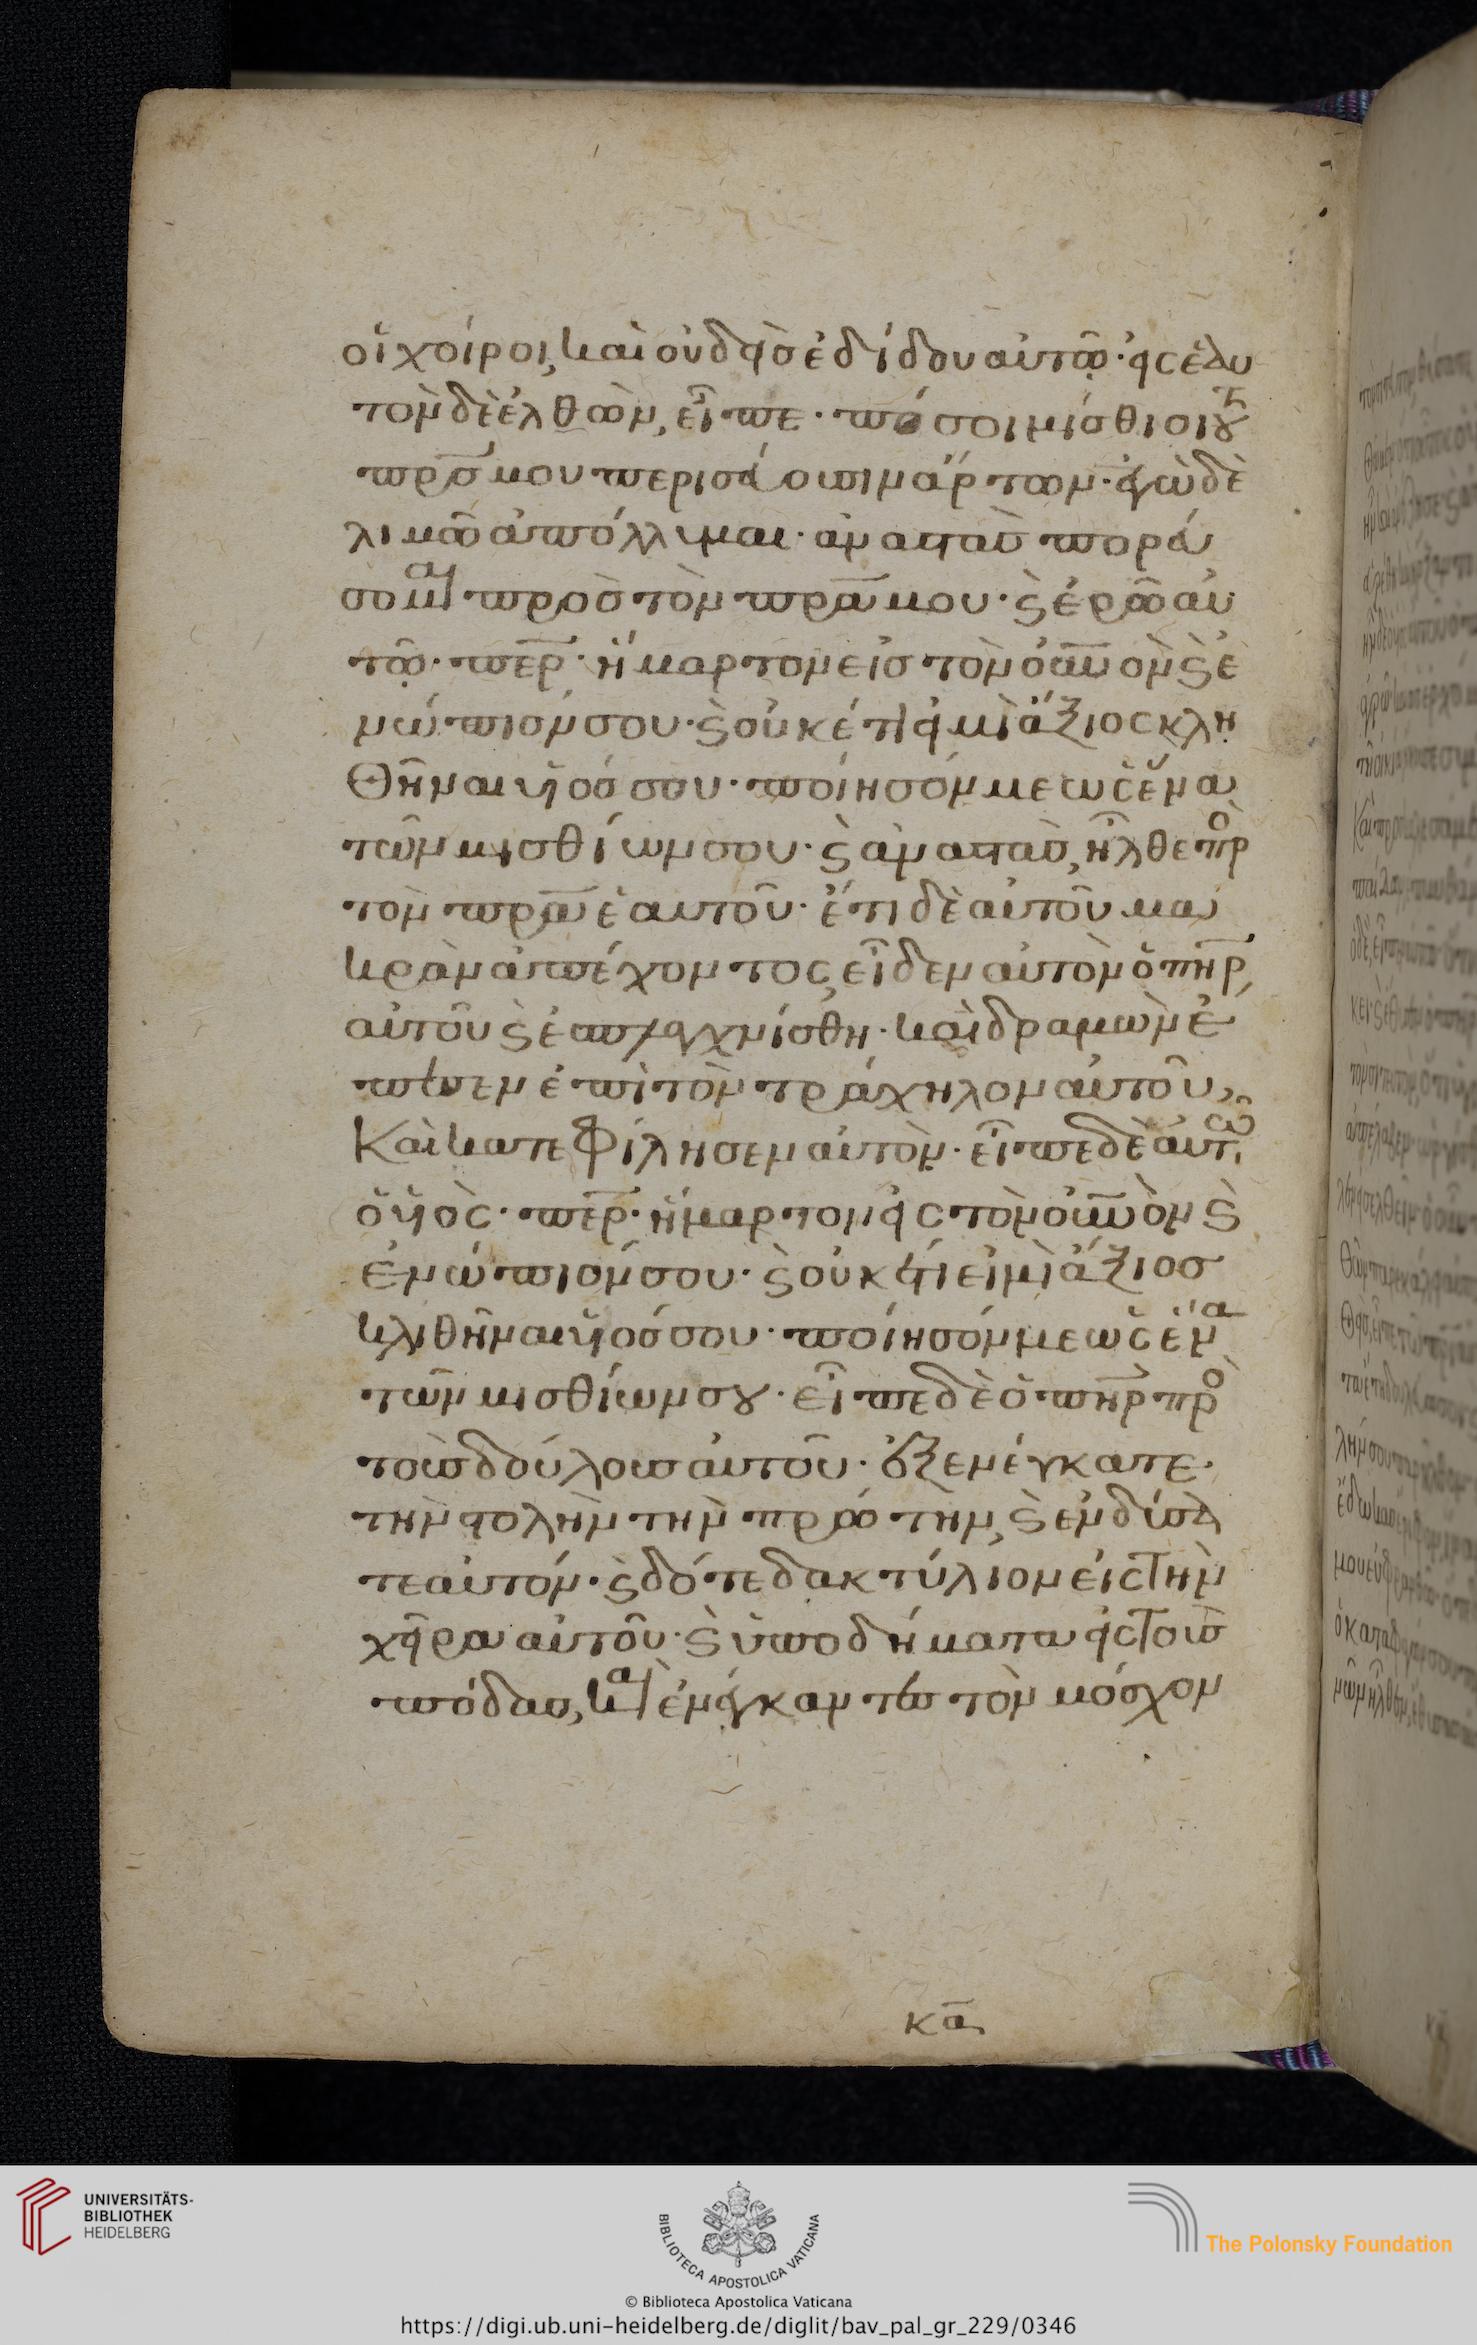 οἱ χοίροι, καὶ οὐδεὶς ἐδίδου αὐτῷ· εἰς ἑαυ
τὸν δὲ ἐλθὼν, εἶπε· πόσοι μίσθιοι τοῦ
πρ̅ς μου περισσεύουσιν ἄρτων· ἐγὼ δὲ
λιμῶ ἀπόλλυμαι· ἀναστὰς πορεύ
σομαι πρὸς τὸν πρ̅α μου· ϗ ἐρῶ αὐ
τῷ· πε̅ρ· ἥμαρτον εἰς τὸν ου̅νον ϗ ἐ
νώπιόν σου· ϗ οὐκέτι εἰμὶ ἄξιος κλη
θῆναι υἱός σου· ποίησόν με ὡς ἕνα
τῶν μισθίων σου· ϗ ἀναστὰς, ἦλθε πρὸ
τὸν πρ̅α ἑαυτοῦ· ἔτι δὲ αὐτοῦ μα
κρὰν ἀπέχοντος, εἶδεν αὐτὸν ὁ πη̅ρ
αὐτοῦ ϗ ἐσπλαγχνίσθη· καὶ δραμὼν ἐ
πέπεσεν ἐπὶ τὸν τράχηλον αὐτοῦ,
Καὶ κατεφίλησεν αὐτὸν· εἶπε δὲ αὐτῶ
ὁ υἱὸς· πε̅ρ· ἥμαρτον εἰς τὸν ου̅νὸν ϗ
ἐνώπιόν σου· ϗ οὐκέτι εἰμὶ ἄξιος
κλιθῆναι υἱός σου· ποίησόν με ὡς ἕνα
τῶν μισθίων σου· εἶπε δὲ ὁ πη̅ρ πρὸ
τοὺς δούλους αὐτοῦ· ἐξενέγκατε
τὴν στολὴν τὴν πρώτην, ϗ ἐνδύσα
τε αὐτόν· ϗ δότε δακτύλιον εἰς τὴν
χεῖρα αὐτοῦ· ϗ ὑποδήματα εἰς τοὺς
πόδας, καὶ ἐνέγκαντες τὸν μόσχον
κα̅
UNIVERSITÄTS-
BIBLIOTHEK
HEIDELBERG
BIBLIOTECA APOSTOLICA VATICANA
© Biblioteca Apostolica Vaticana
The Polonsky Foundation
https://digi.ub.uni-heidelberg.de/diglit/bav_pal_gr_229/0346